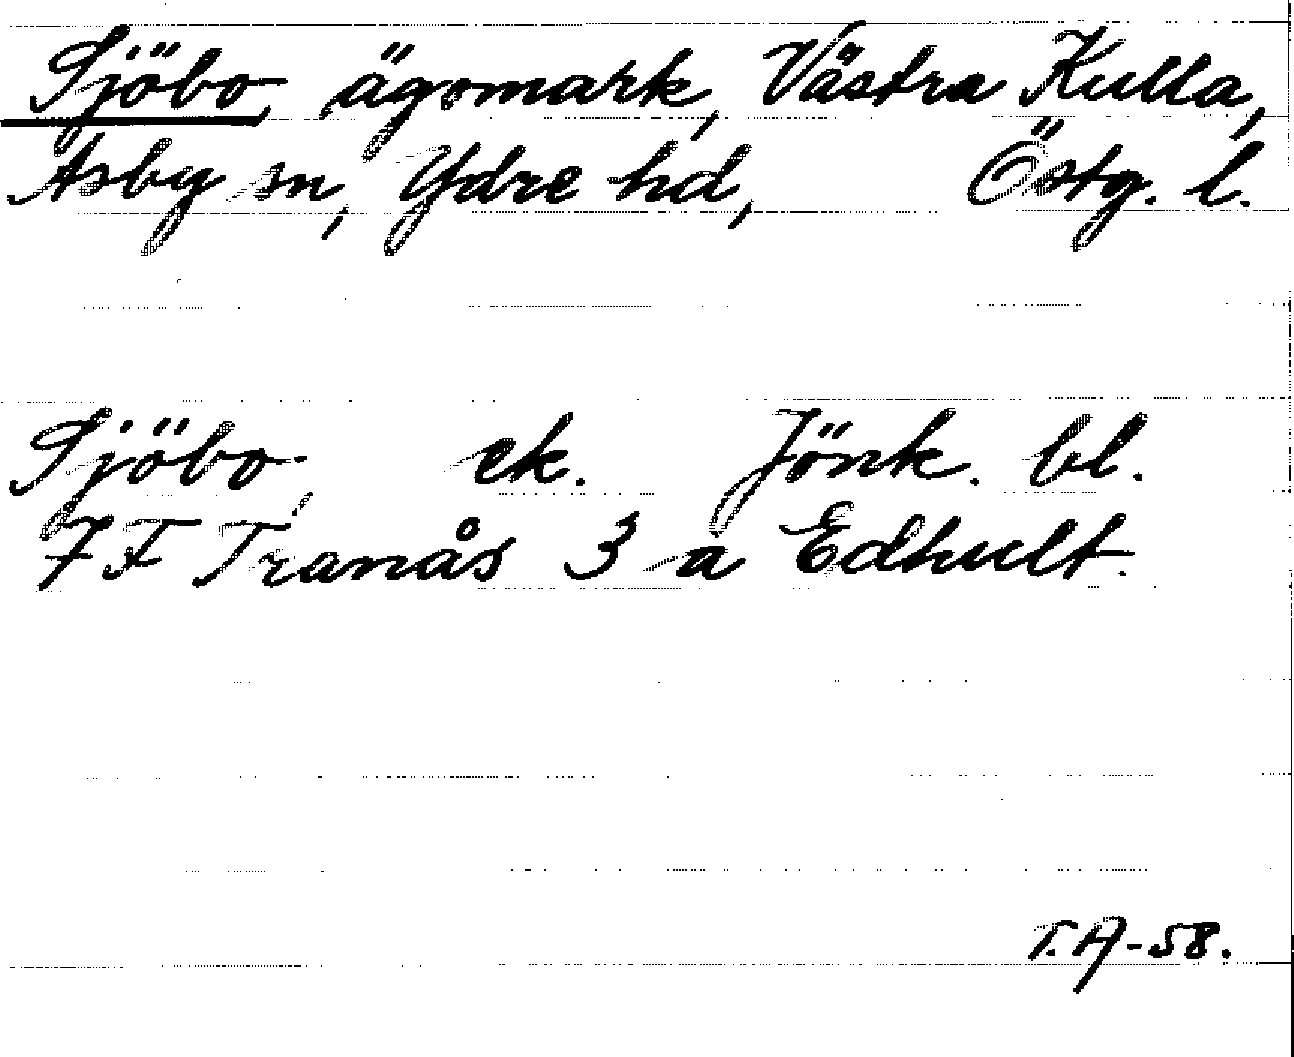 Sjöbo, ägomark, Västra Kulla,
Asby sn, Ydre hd, Östg. l.
Sjöbo, ek. Jönk. bl.
7F Tranås 3 a Edhult.
T.A-58.